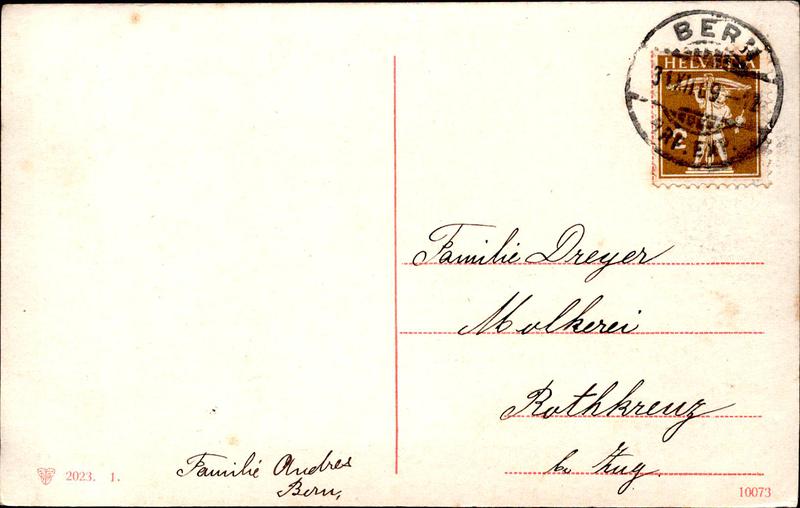 BERN
HELVETIA
31.XII.09.
BRF. EXP.
2
Familie Dreyer
Molkerei
Rothkreuz
b/ Zug.
Familie Andres
Bern,
2023. 1.
10073